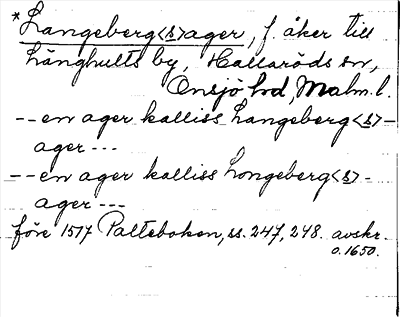 *Langeberg<s>ager, f. åker till
Länghults by, Hallaröds sn,
Onsjö hd, Malm. l.
-- en ager kalliss Langeberg<s>-
ager ---
-- en ager kalliss Longeberg<s>-
ager ---
före 1517 Palteboken, ss. 247, 248. avskr.
o. 1650.